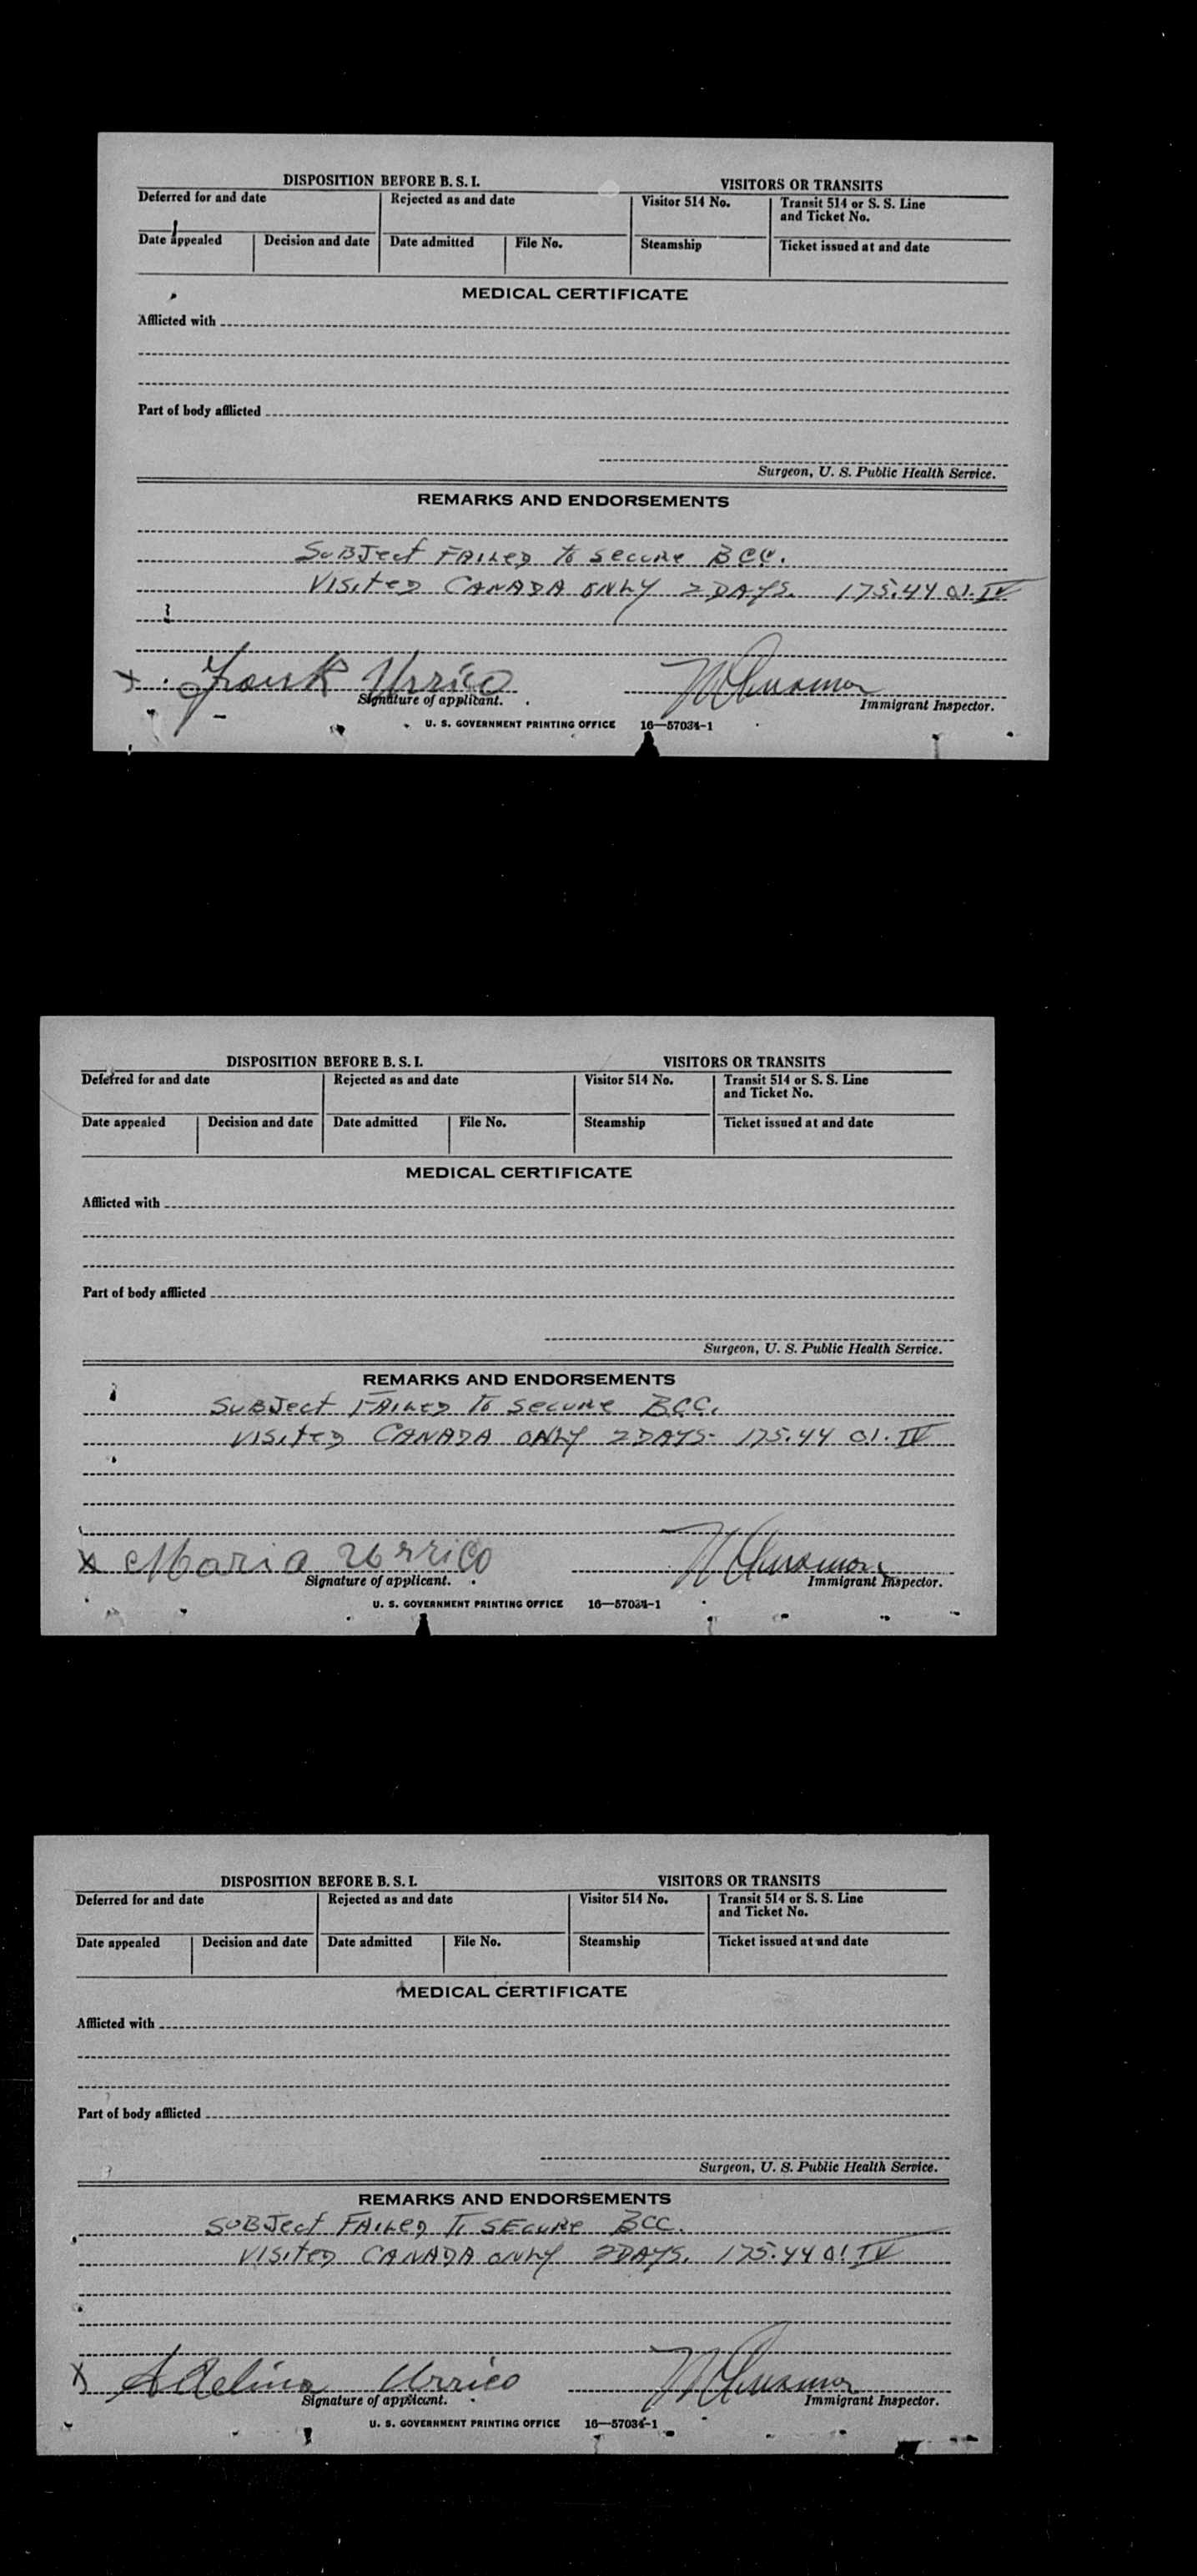 DISPOSITION BEFORE B. S. I. VISITORS OR TRANSITS
Deferred for and date Rejected as and date Visitor 514 No. Transit 514 or S. S. Line and Ticket No.
Date appealed Decision and date Date admitted File No. Steamship Ticket issued at and date
MEDICAL CERTIFICATE
Afflicted with
Part of body afflicted
Surgeon, U. S. Public Health Service.
REMARKS AND ENDORSEMENTS
SUBJect FAILED to secure BCC.
VISITED CANADA ONLY 2 DAYS. 175.44 01. IV
X Frank Urrico
Signature of applicant. Immigrant Inspector.
U. S. GOVERNMENT PRINTING OFFICE 16—57034-1
DISPOSITION BEFORE B. S. I. VISITORS OR TRANSITS
Deferred for and date Rejected as and date Visitor 514 No. Transit 514 or S. S. Line and Ticket No.
Date appealed Decision and date Date admitted File No. Steamship Ticket issued at and date
MEDICAL CERTIFICATE
Afflicted with
Part of body afflicted
Surgeon, U. S. Public Health Service.
REMARKS AND ENDORSEMENTS
SUBJect FAILED to secure BCC.
VISITED CANADA ONLY 2 DAYS. 175.44 01. IV
X Maria Urrico
Signature of applicant. Immigrant Inspector.
U. S. GOVERNMENT PRINTING OFFICE 16—57034-1
DISPOSITION BEFORE B. S. I. VISITORS OR TRANSITS
Deferred for and date Rejected as and date Visitor 514 No. Transit 514 or S. S. Line and Ticket No.
Date appealed Decision and date Date admitted File No. Steamship Ticket issued at and date
MEDICAL CERTIFICATE
Afflicted with
Part of body afflicted
Surgeon, U. S. Public Health Service.
REMARKS AND ENDORSEMENTS
SUBJect FAILED To SEcure BCC.
VISITED CANADA ONLY 2 DAYS. 175.44 01 IV
X Adelina Urrico
Signature of applicant. Immigrant Inspector.
U. S. GOVERNMENT PRINTING OFFICE 16—57034-1